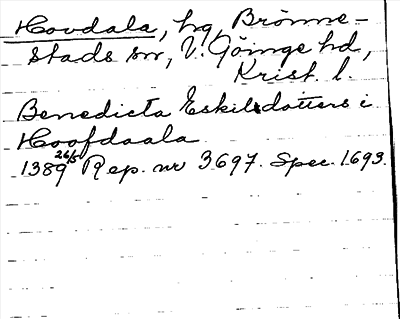 Hovdala, hg, Brönne-
stads sn, V. Göinge hd,
Krist. l.
Benedicta Eskilsdotters i
Hoofdaala
1389 26/5 Rep. nr 3697. Spec. 1693.